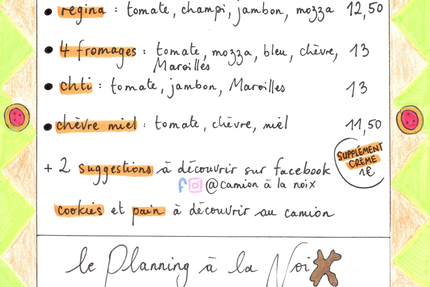 • regina : tomate, champi, jambon, mozza 12,50
• 4 fromages : tomate, mozza, bleu, chèvre, 13
Maroilles
• chti : tomate, jambon, Maroilles 13
• chèvre miel : tomate, chèvre, miel 11,50
SUPPLÉMENT
CRÈME
1€
+ 2 suggestions à découvrir sur facebook
@camion à la noix
cookies et pain à découvrir au camion
le Planning à la Noix